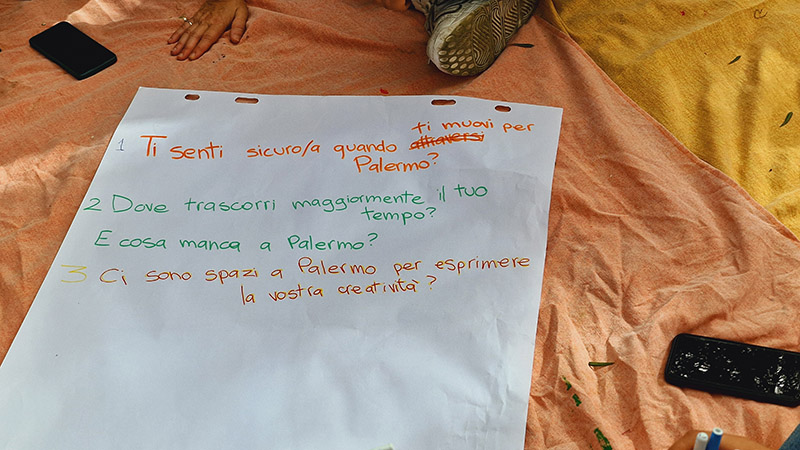 1 Ti senti sicuro/a quando attraversi ti muovi per
Palermo?
2 Dove trascorri maggiormente il tuo
tempo?
E cosa manca a Palermo?
3 Ci sono spazi a Palermo per esprimere
la vostra creatività?